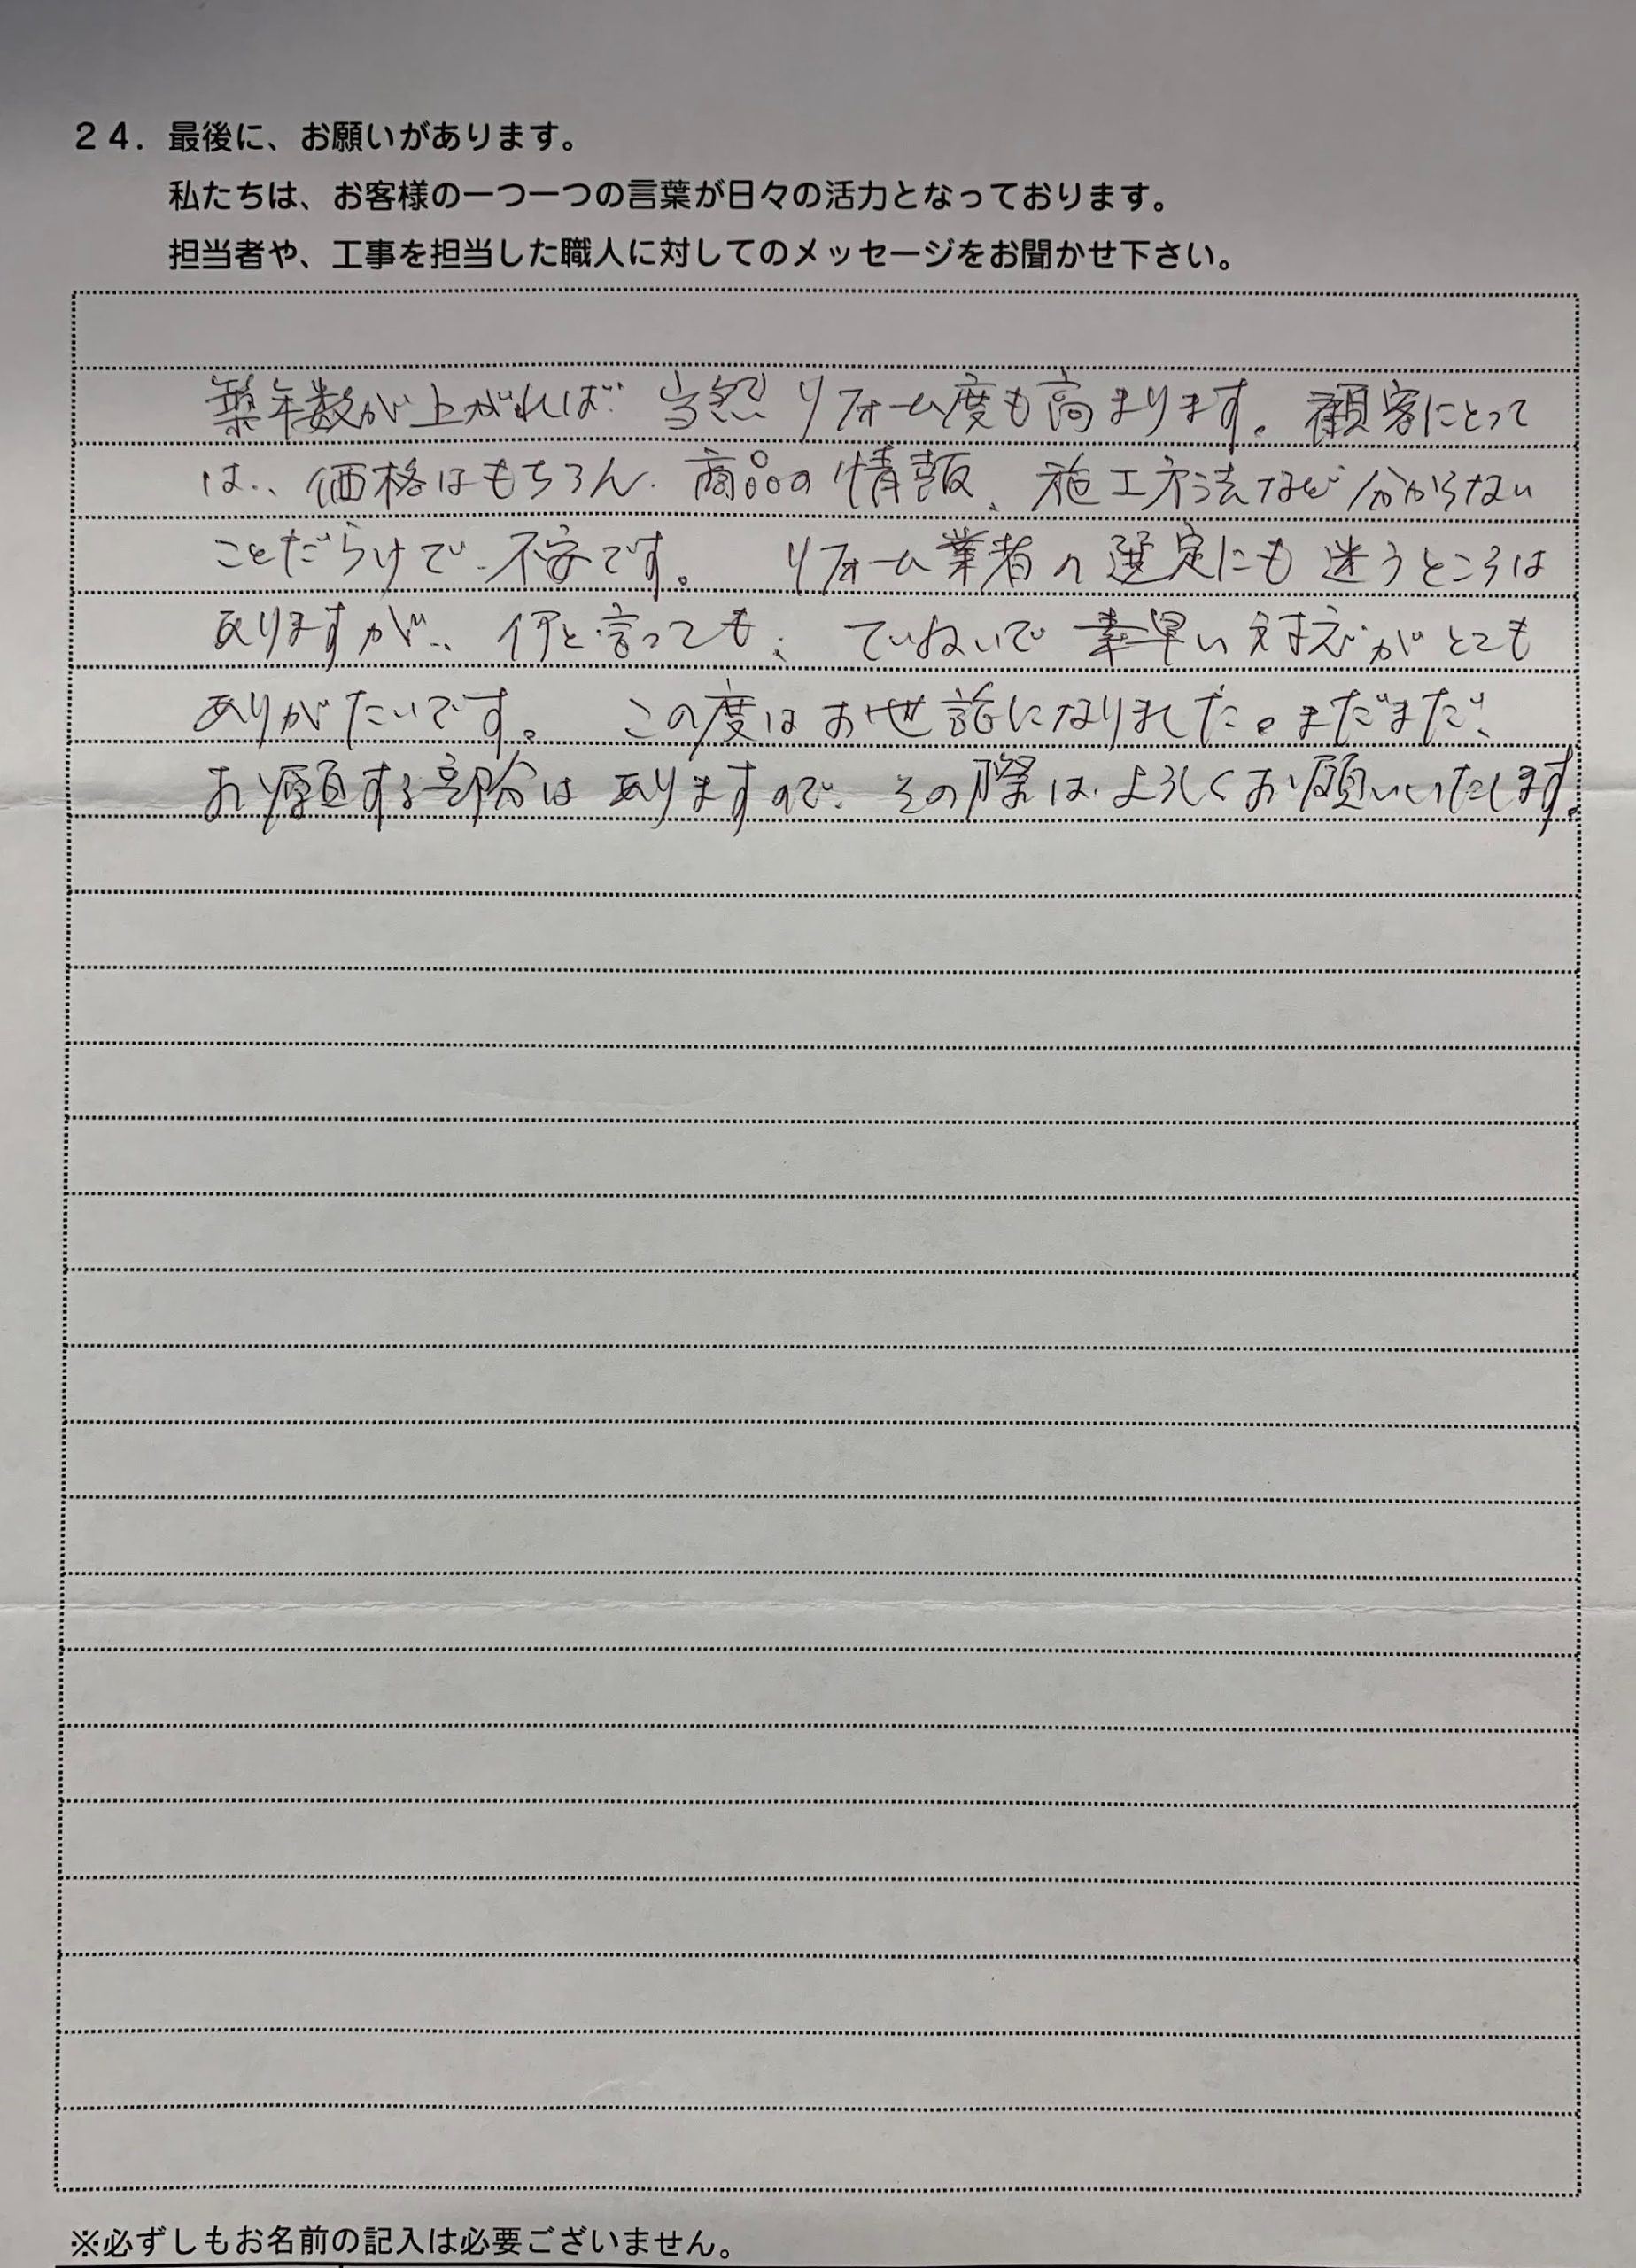 ２４．最後に、お願いがあります。
私たちは、お客様の一つ一つの言葉が日々の活力となっております。
担当者や、工事を担当した職人に対してのメッセージをお聞かせ下さい。
築年数が上がれば 当然 リフォーム度も高まります。顧客にとって
は、価格はもちろん、商品の情報、施工方法など分からない
ことだらけで、不安です。 リフォーム業者の選定にも迷うところは
ありますが、何と言っても、ていねいで素早い対応がとても
ありがたいです。 この度はお世話になりました。まだまだ、
お願する部分はありますので、その際は、よろしくお願いいたします。
※必ずしもお名前の記入は必要ございません。